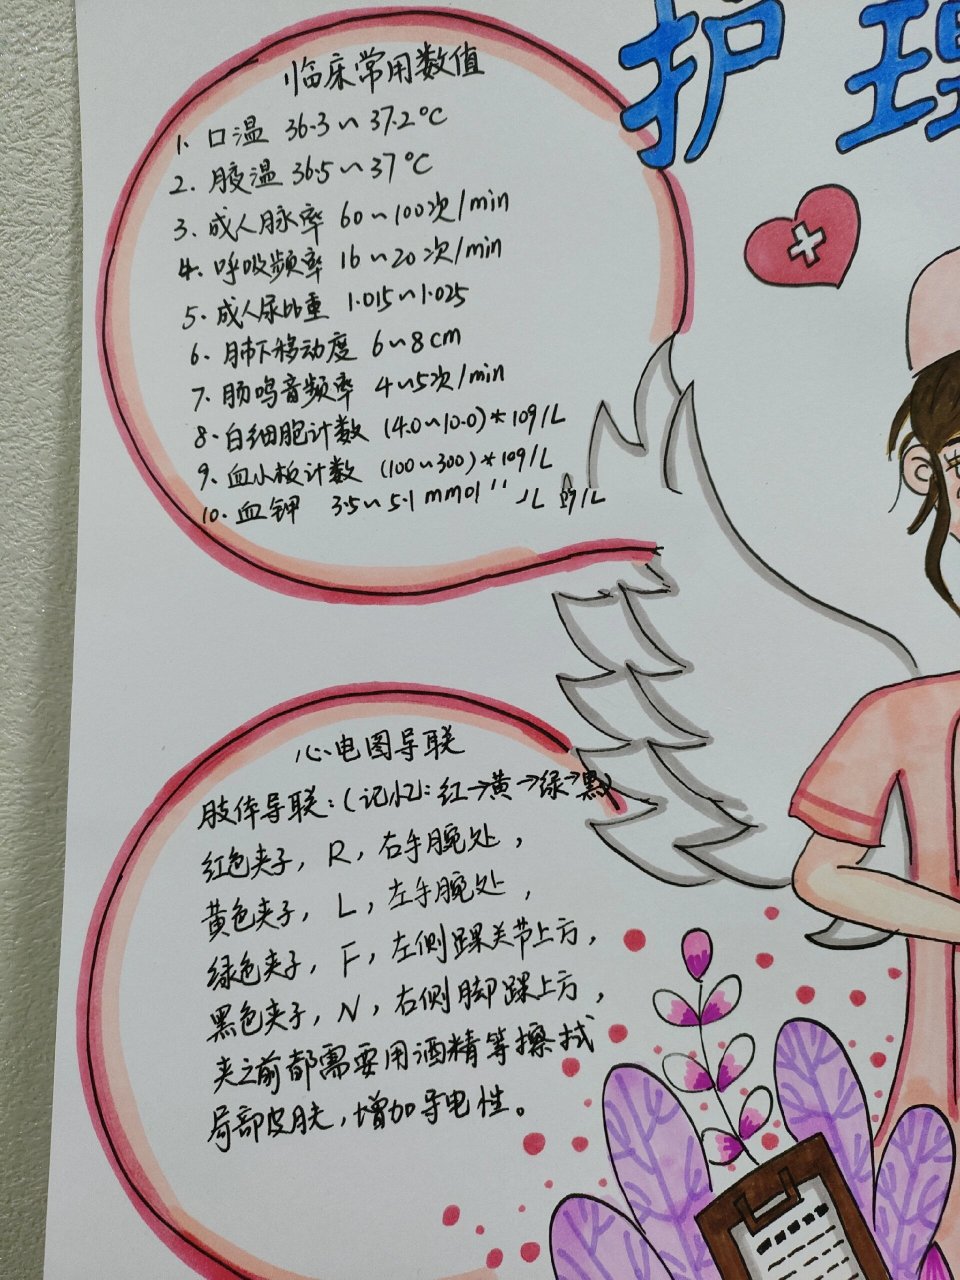 护理
临床常用数值
1. 口温 36.3~37.2℃
2. 腋温 36.5~37℃
3. 成人脉率 60~100次/min
4. 呼吸频率 16~20次/min
5. 成人尿比重 1.015~1.025
6. 肺下移动度 6~8cm
7. 肠鸣音频率 4~5次/min
8. 白细胞计数 (4.0~10.0)*109/L
9. 血小板计数 (100~300)*109/L
10. 血钾 3.5~5.1 mmol
心电图导联
肢体导联:(记忆:红→黄→绿→黑)
红色夹子, R, 右手腕处,
黄色夹子, L, 左手腕处,
绿色夹子, F, 左侧踝关节上方,
黑色夹子, N, 右侧脚踝上方,
夹之前都需要用酒精等擦拭
局部皮肤,增加导电性。